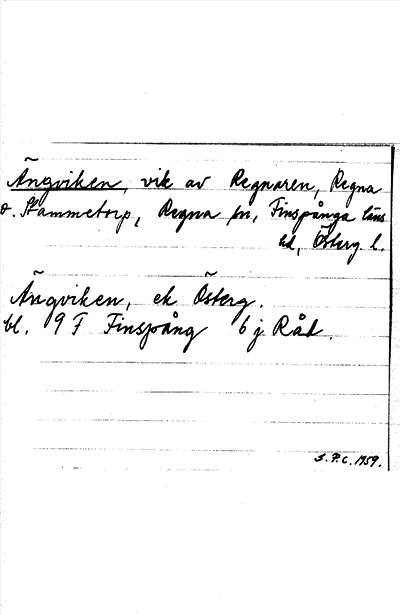 Ängviken, vik av Regnaren, Regna
o. Stammetorp, Regna sn, Finspånga läns
hd, Österg. l.
Ängviken, ek Österg.
bl. 9 F Finspång 6 j Råd.
S.P.C. 1959.